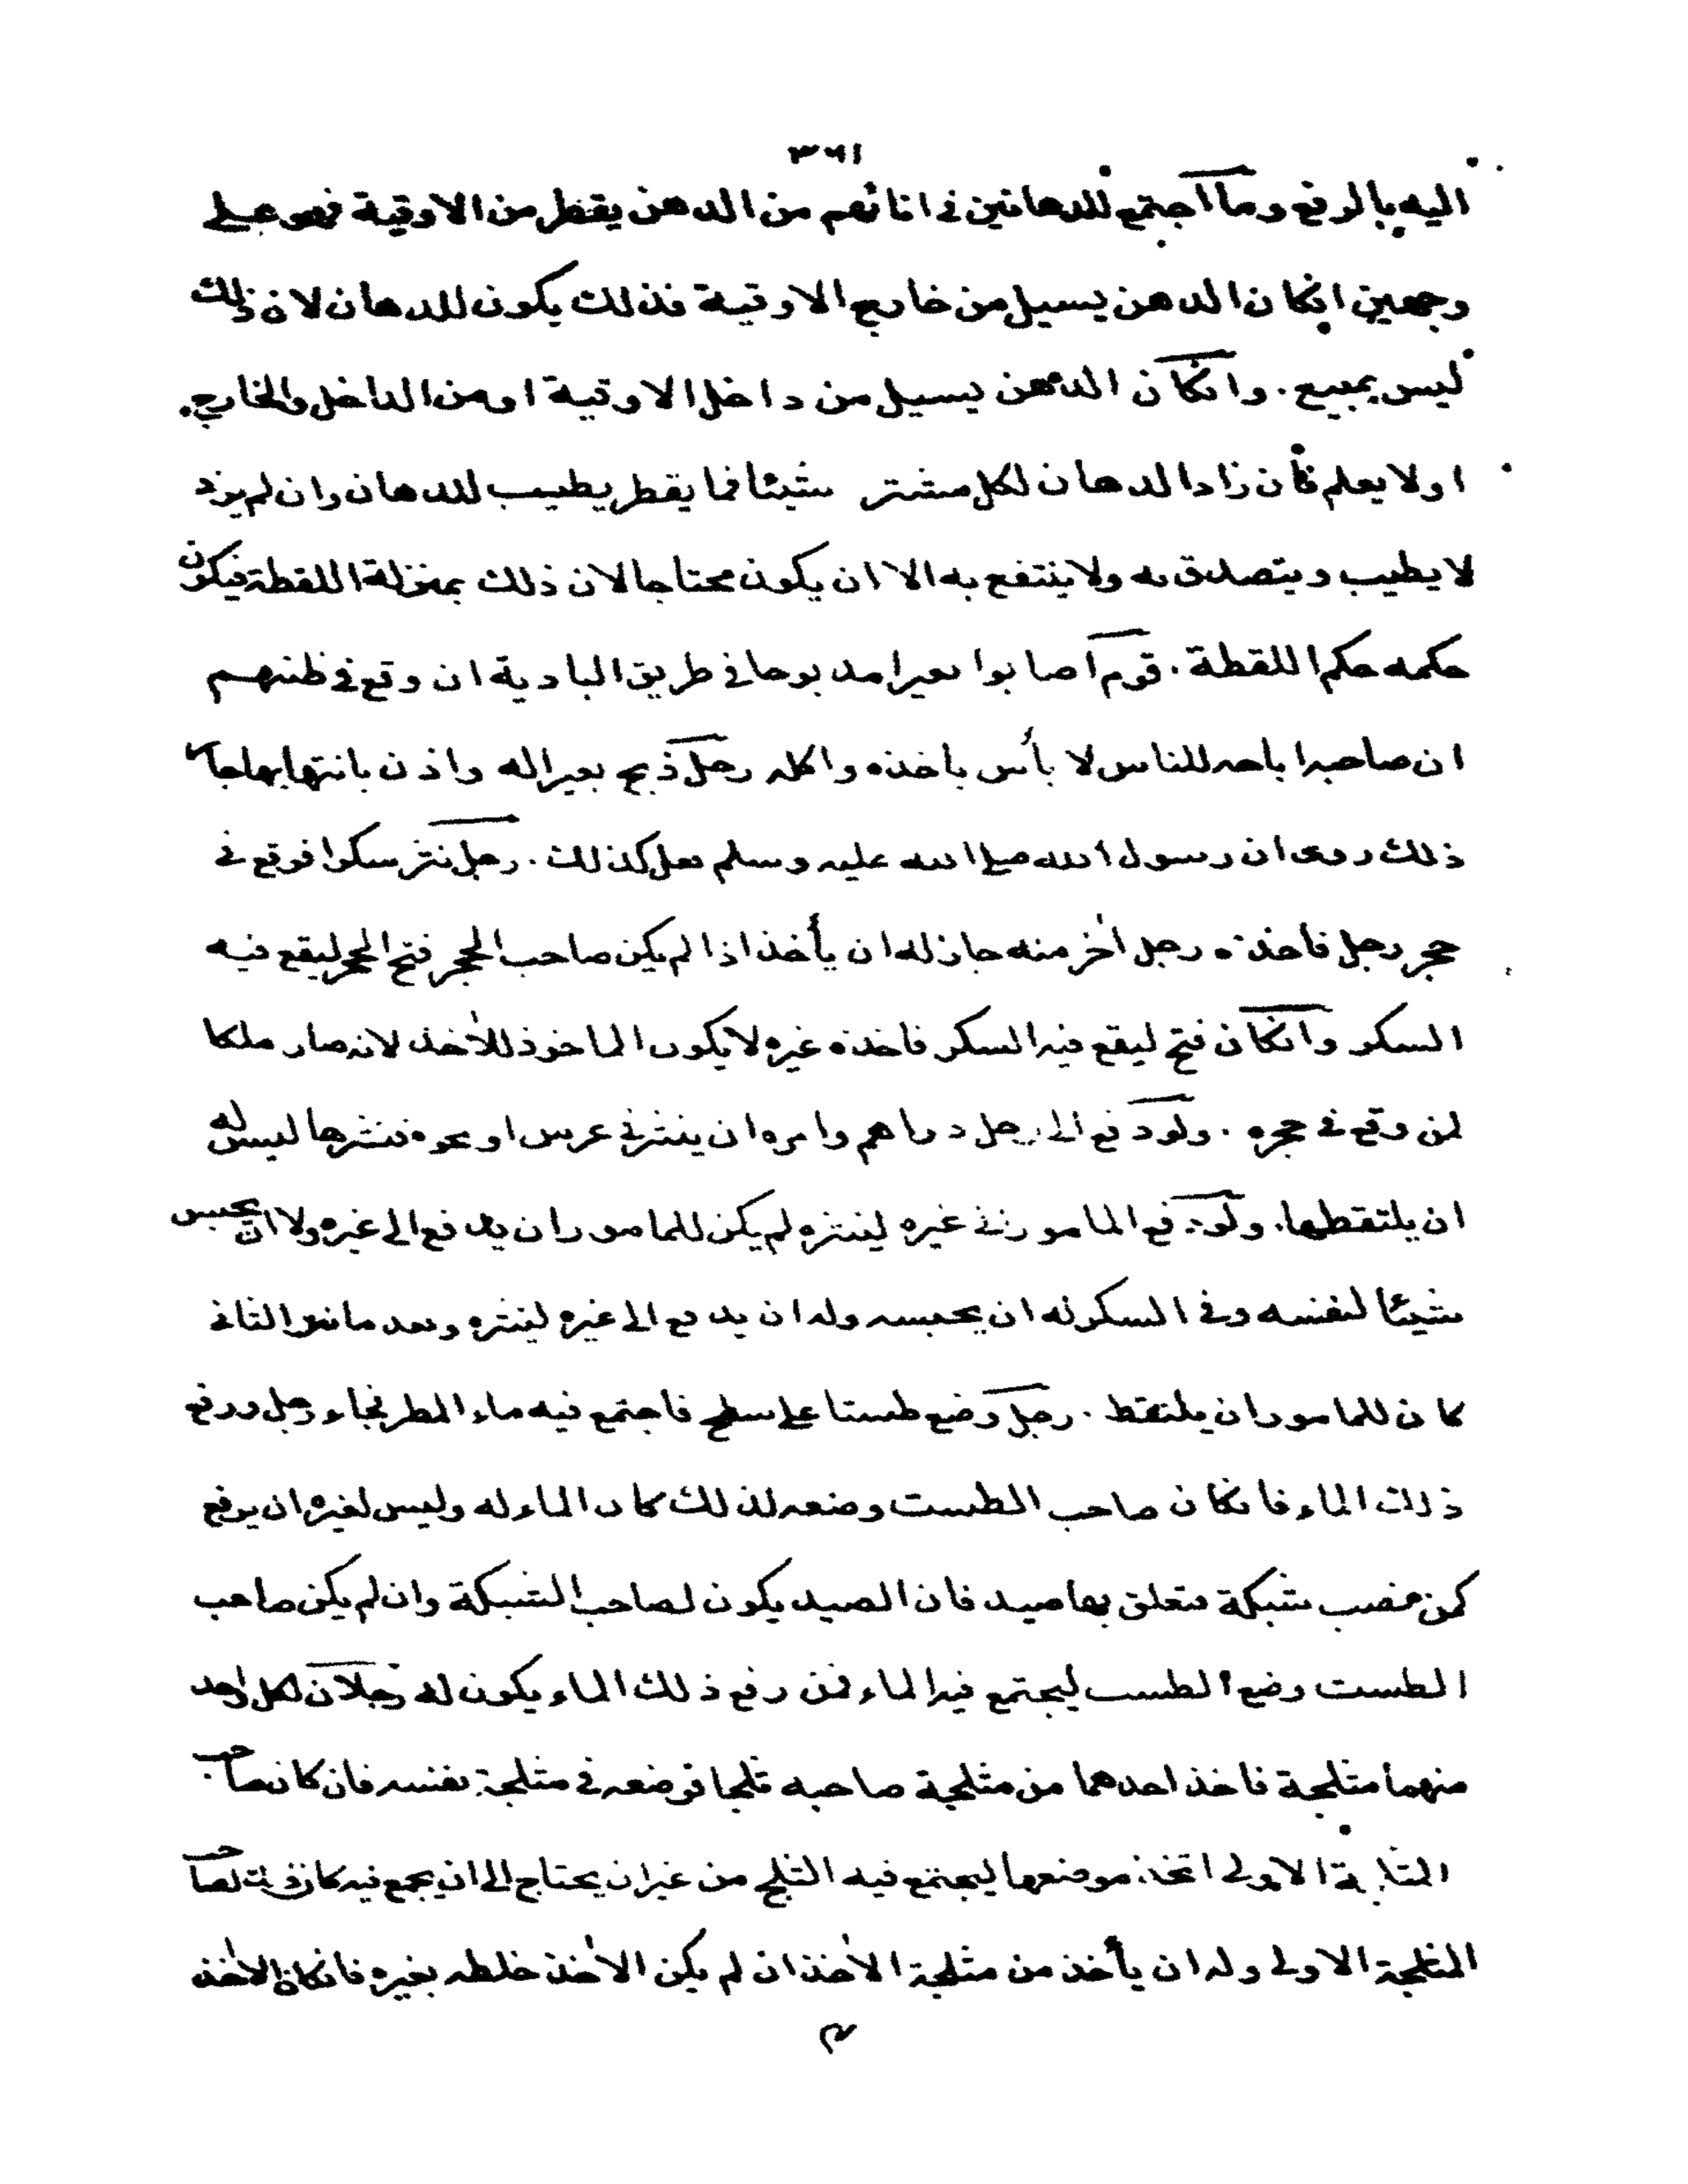 ٣٦١
اليه بالرفع وما اجتمع للدهانين في انائهم من الدهن يقطر من الاوقية فهو على
وجهين انكان الدهن يسيل من خارج الاوقية فذلك يكون للدهان لان ذلك
ليس بمبيع . وانكان الدهن يسيل من داخل الاوقية او من الداخل والخارج .
اولا يعلم فأن زاد الدهان لكل مشتر شيئا فما يقطر يطيب للدهان وان لم يزد
لا يطيب ويتصدق به ولا ينتفع به الا ان يكون محتاجا لان ذلك بمنزلة اللقطة فيكون
حكمه حكم اللقطة . قوم اصابوا بعيرا مذبوحا في طريق البادية ان وقع في ظنهم
ان صاحبه اباحه للناس لا بأس باخذه واكله رجل ذبح بعيرا له واذن بانتهابها جاز
ذلك روى ان رسول الله صلى الله عليه وسلم فعل كذلك . رجل نثر سكرا فوقع في
حجر رجل فاخذه رجل اخر منه جاز له ان يأخذ اذا لم يكن صاحب الحجر فتح الحجر ليقع فيه
السكر وانكان فتح ليقع فيه السكر فاخذه غيره لا يكون الماخوذ للاخذ لانه صار ملكا
لمن وقع في حجره . ولو دفع الى رجل دراهم وامره ان ينثر في عرس او نحوه فنثرها ليس له
ان يلتقطها . ولو دفع المامور في غيره لينثره لم يكن للمامور ان يدفع الى غيره ولا ان يحبس
شيئا لنفسه وفي السكر له ان يحبسه وله ان يدفع الى غيره لينثره وبعد ما نثر الثاني
كان للمامور ان يلتقط . رجل وضع طستا على سطح فاجتمع فيه ماء المطر فجاء رجل ورفع
ذلك الماء فانكان صاحب الطست وضعه لذلك كان الماء له وليس لغيره ان يرفع
كمن نصب شبكة فتعلق بها صيد فان الصيد يكون لصاحب الشبكة وان لم يكن صاحب
الطست وضع الطست ليجتمع فيه الماء فمن رفع ذلك الماء يكون له رجلان لكل واحد
منهما مثلجة فاخذ احدهما من مثلجة صاحبه ثلجا فوضعه في مثلجة نفسه فان كان صاحب
المثلجة الاولى اتخذ موضعها ليجتمع فيه الثلج من غير ان يحتاج الى ان يجمع فيه كان ذلك لصاحب
المثلجة الاولى وله ان يأخذ من مثلجة الاخذ ان لم يكن الاخذ خلطه بغيره فانكان الاخذ